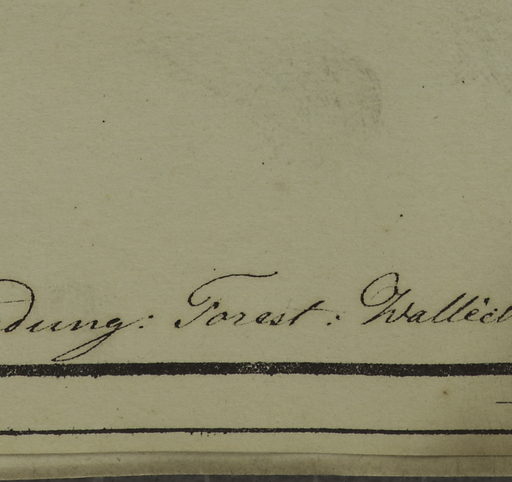 dung: Forest: Walléet